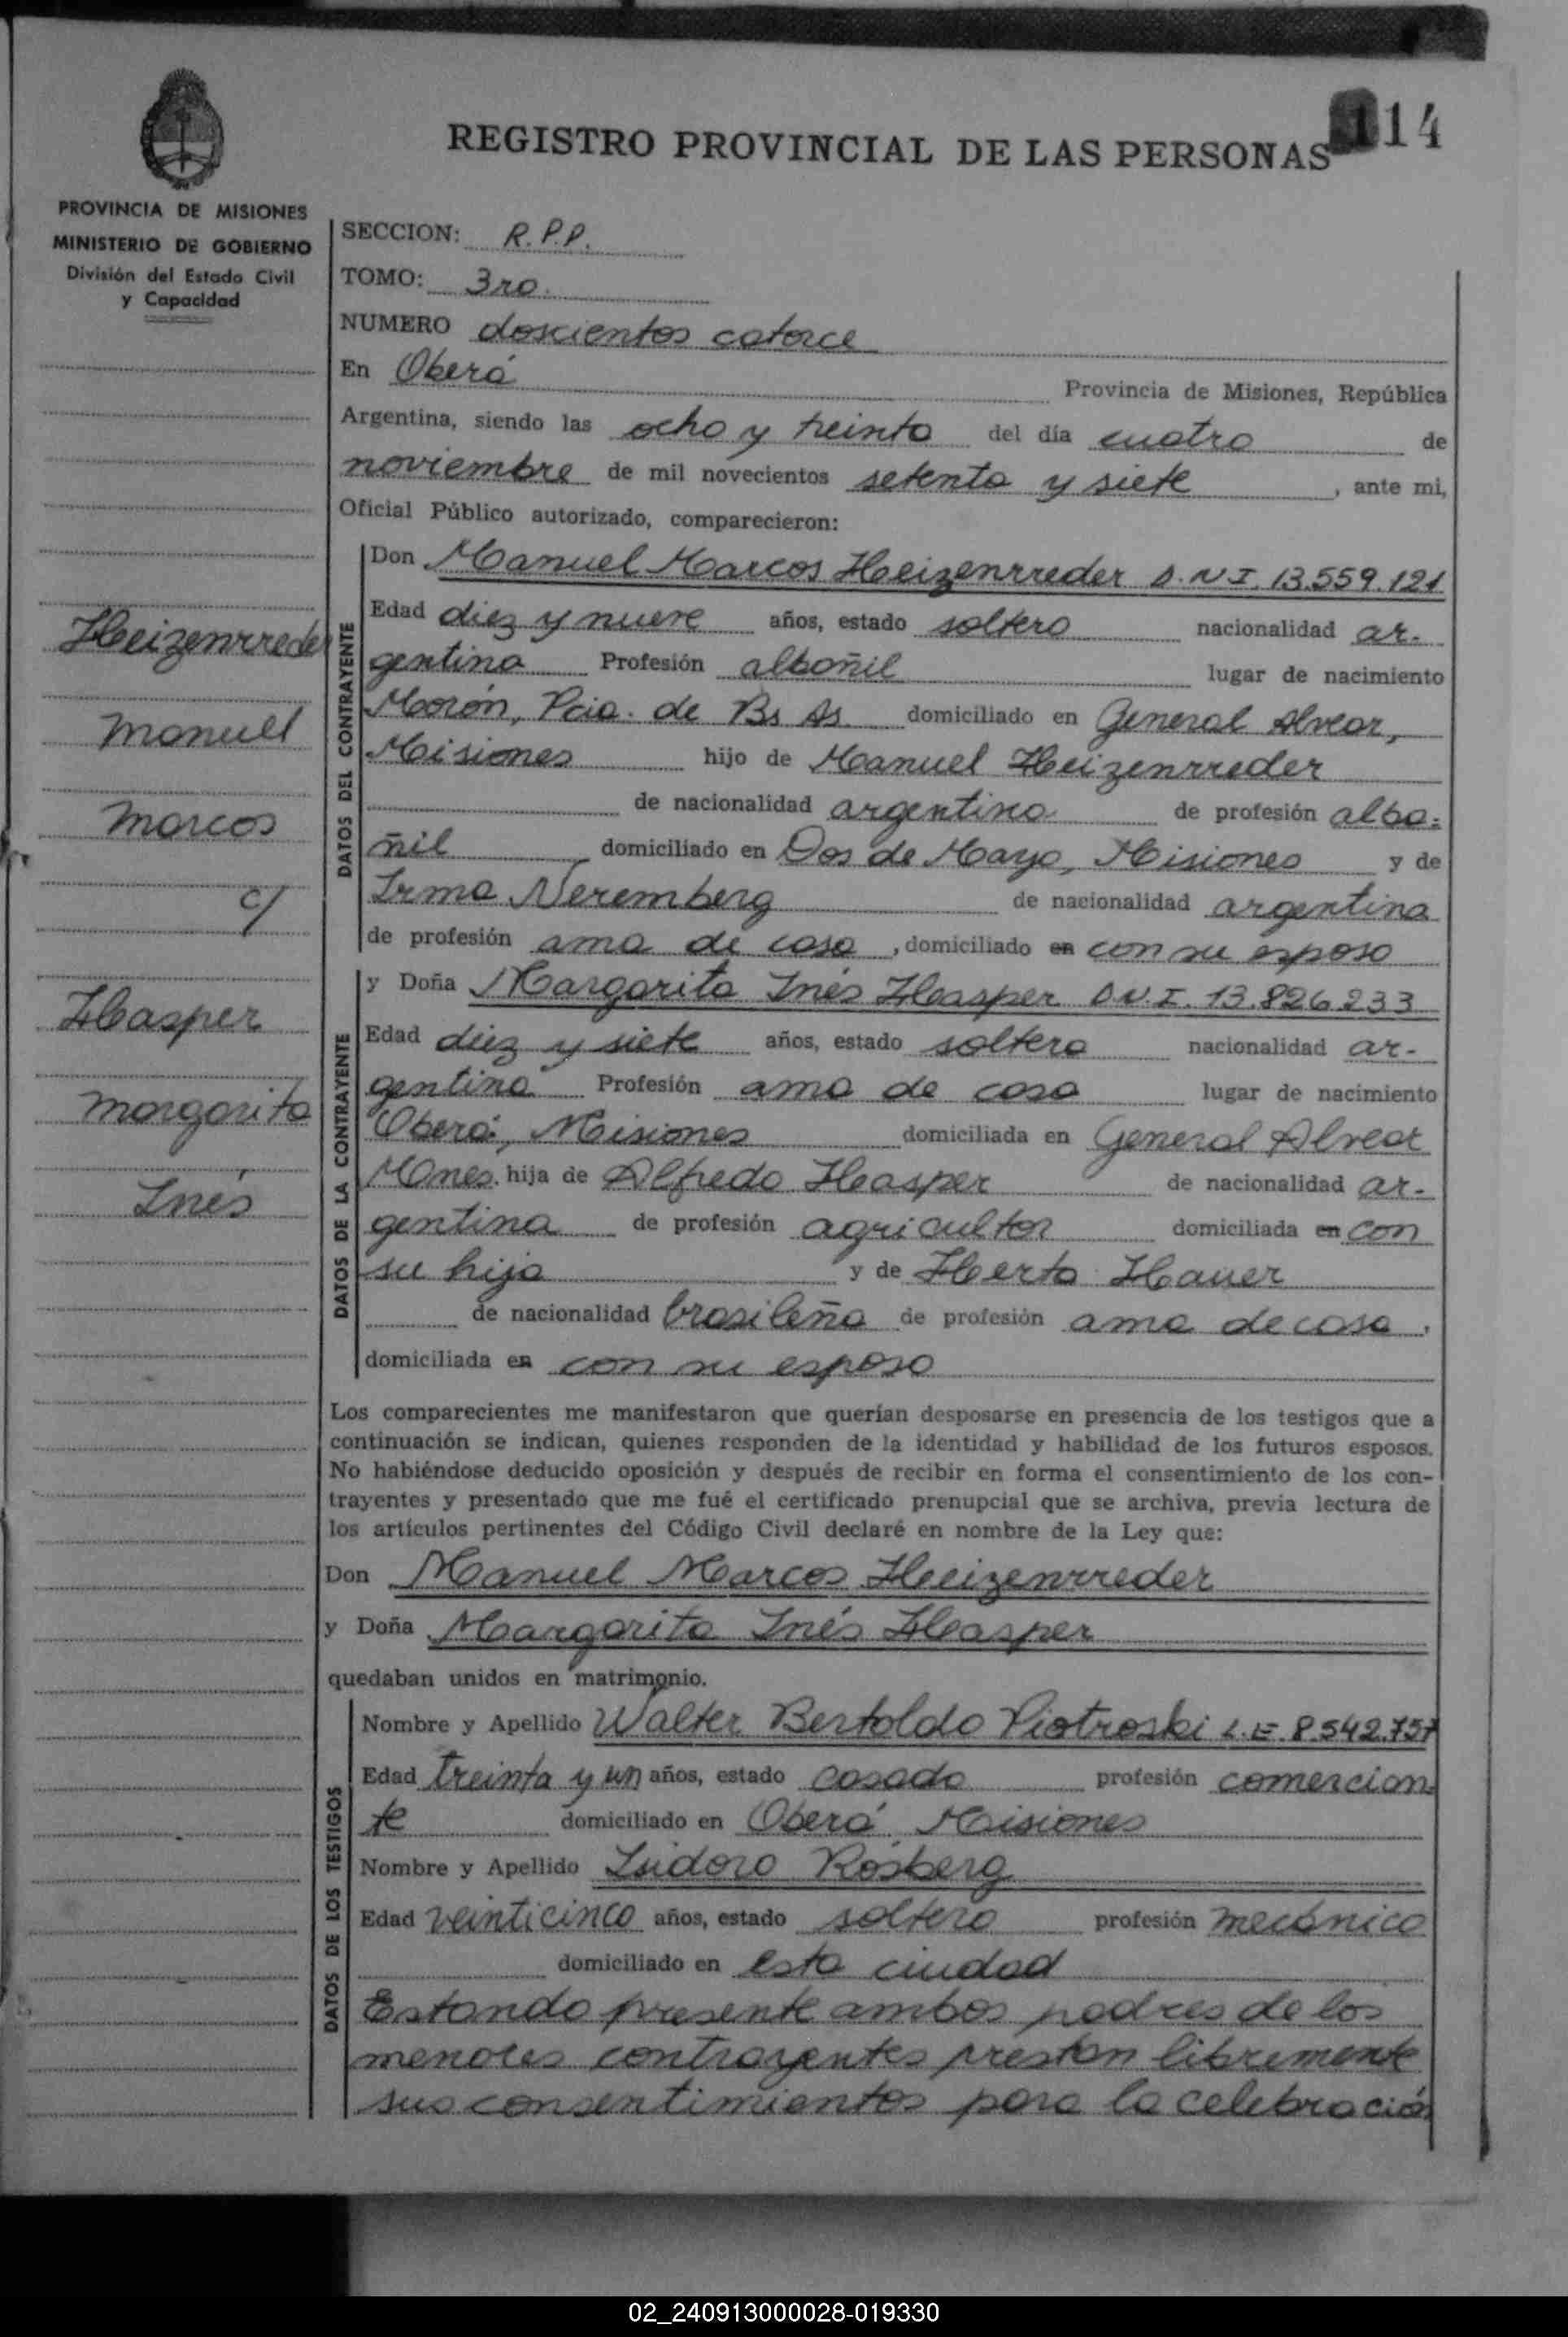 114
REGISTRO PROVINCIAL DE LAS PERSONAS
PROVINCIA DE MISIONES
MINISTERIO DE GOBIERNO
División del Estado Civil
y Capacidad
Heizenrreder
Manuel
Marcos
c/
Hasper
Margarita
Inés
SECCION: R.P.P.
TOMO: 3ro.
NUMERO doscientos catorce
En Oberá Provincia de Misiones, República
Argentina, siendo las ocho y treinta del día cuatro de
noviembre de mil novecientos setenta y siete, ante mi,
Oficial Público autorizado, comparecieron:
DATOS DEL CONTRAYENTE
Don Manuel Marcos Heizenrreder D.N.I. 13.559.121
Edad diez y nueve años, estado soltero nacionalidad ar-
gentina Profesión albañil lugar de nacimiento
Morón, Pcia. de Bs As. domiciliado en General Alvear,
Misiones hijo de Manuel Heizenrreder
de nacionalidad argentina de profesión alba-
ñil domiciliado en Dos de Mayo, Misiones y de
Irma Neremberg de nacionalidad argentina
de profesión ama de casa, domiciliado en con su esposo
DATOS DE LA CONTRAYENTE
y Doña Margarita Inés Hasper D.N.I. 13.826.233
Edad diez y siete años, estado soltera nacionalidad ar-
gentina Profesión ama de casa lugar de nacimiento
Oberá, Misiones domiciliada en General Alvear
Mnes. hija de Alfredo Hasper de nacionalidad ar-
gentina de profesión agricultor domiciliada en con
su hija y de Herta Hauer
de nacionalidad brasileña de profesión ama de casa,
domiciliada en con su esposo
Los comparecientes me manifestaron que querían desposarse en presencia de los testigos que a
continuación se indican, quienes responden de la identidad y habilidad de los futuros esposos.
No habiéndose deducido oposición y después de recibir en forma el consentimiento de los con-
trayentes y presentado que me fué el certificado prenupcial que se archiva, previa lectura de
los artículos pertinentes del Código Civil declaré en nombre de la Ley que:
Don Manuel Marcos Heizenrreder
y Doña Margarita Inés Hasper
quedaban unidos en matrimonio.
DATOS DE LOS TESTIGOS
Nombre y Apellido Walter Bertoldo Piotroski L.E. 8.542.757
Edad treinta y un años, estado casado profesión comercian-
te domiciliado en Oberá, Misiones
Nombre y Apellido Isidoro Rosberg
Edad veinticinco años, estado soltero profesión mecánico
domiciliado en esta ciudad
Estando presente ambos padres de los
menores contrayentes prestan libremente
sus consentimientos para la celebración
02_240913000028-019330